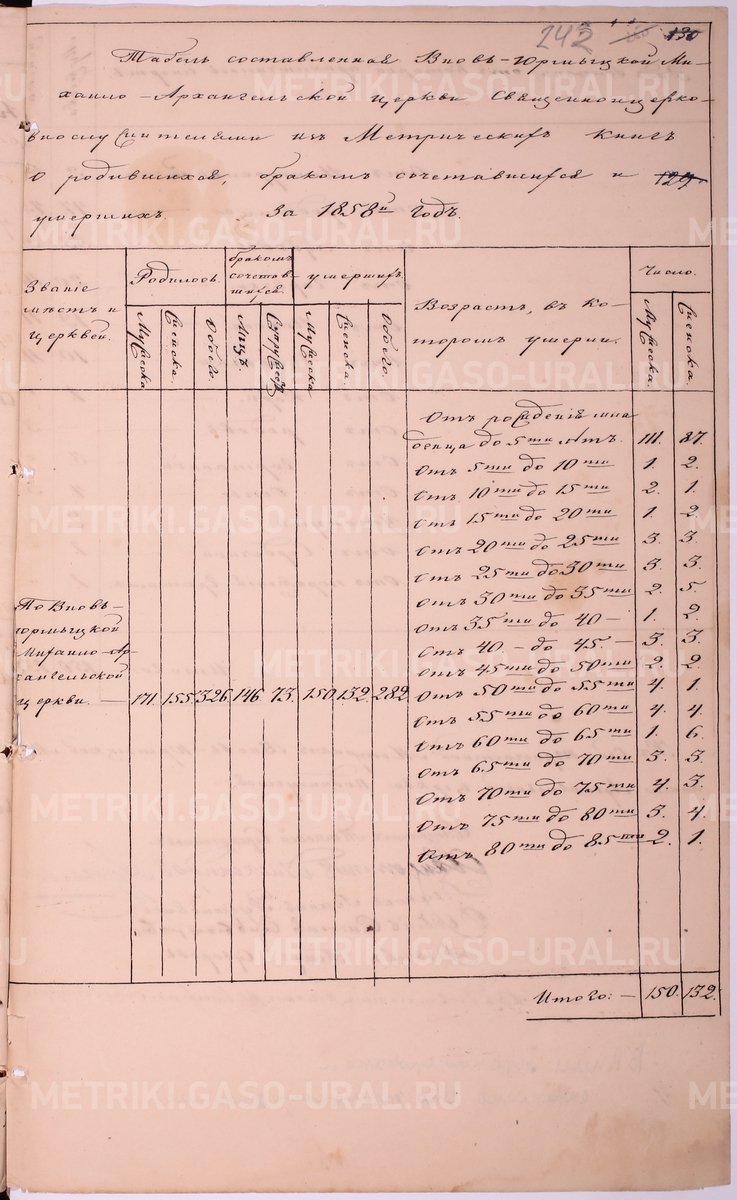 242 130
Табель составленная Вновь-Юрмыцкой Ми-
хаило-Архангельской церкви Священноцерко-
внослужителями изъ Метрическихъ книгъ
о родившихся, бракомъ сочетавшихся и 129.
умершихъ. За 1858й годъ.
Званіе мѣстъ и церквей. | Родилось. | бракомъ сочетавшихся | умершихъ. | Возрастъ, въ которомъ умерли. | Число.
Мужеска. | Женска. | Обоего. | Лицъ. | Супружествъ | Мужеска | Женска. | Обоего. | Мужеска. | Женска.
Отъ рожденія мла
денца до 5ти лѣтъ. 111. 87.
Отъ 5ти до 10ти 1. 2.
Отъ 10ти до 15ти 2. 1.
Отъ 15ти до 20ти 1. 2.
Отъ 20ти до 25ти 3. 3.
Отъ 25ти до 30ти 3. 3.
Отъ 30ти до 35ти 2. 5.
Отъ 35ти до 40 – 1. 2.
Отъ 40. – до 45. – 3. 3.
Отъ 45ти до 50ти 2. 2.
Отъ 50ти до 55ти 4. 1.
Отъ 55ти до 60ти 4. 4.
Отъ 60ти до 65ти 1. 6.
Отъ 65ти до 70ти 3. 3.
Отъ 70ти до 75ти 4. 3.
Отъ 75ти до 80ти 3. 4.
Отъ 80ти до 85ти 2. 1.
По Вновь-
юрмыцкой
Михаило-Ар
хангельской
церкви. — 171. 155. 326. 146. 73. 150. 132. 282.
Итого: — 150. 132.
METRIKI.GASO-URAL.RU